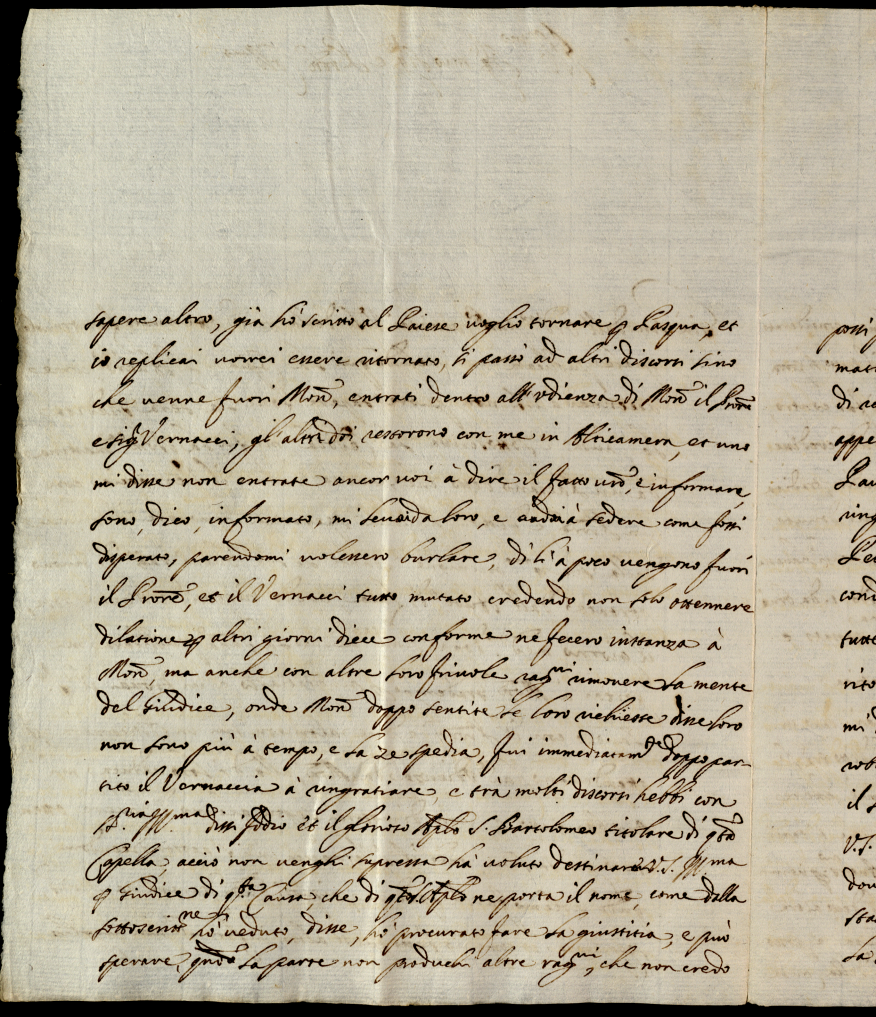 sapere altro, già hò scritto al Paiese uoglio tornare p Pasqua, et
io replicai uorrei essere ritornato, si passò ad altri discorsi sino
che uenne fuori Mon.re, entrati dentro all'udienza di Mon.re il
e Sig.r Vernacci, gl'altri doi restorono con me in Anticamera, et uno
mi disse non entrate ancor uoi à dire il fatto uro, e informare,
sono, dico, informato, mi leuai da loro, e andai à sedere come fossi
disperato, parendomi uolessero burlare, di lì à poco uengono fuori
il et il Vernacci tutto mutato credendo non solo ottennere
dilatione p altri giorni diece conforme ne fecero instanza à
Mon.re, ma anche con altre loro friuole rag.ni rimouere la mente
del Giudice, onde Mon.re doppo sentite le loro richieste disse loro
non sono più à tempo, e la respedia, fui immediatam.te doppo par-
tito il Vernaccia à ringratiare, e trà molti discorsi hebbi con
S.ria Ill.ma dissi Iddio et il glorioso Aplo S. Bartolomeo titolare di qta
Capella, acciò non uenghi supressa hà uoluto destinare V.S. Ill.ma
p Giudice di q.ta Causa, che di qto S. Aplo ne porta il nome, come dalla
sottoscritt.ne hò ueduto, disse, hò procurato fare la giustitia, e può
sperare, la parte non produchi altre rag.ni, che non credo
posti
mat
di
appe
ring
cond
tutte
rito
mi
il
V.S.
dou
sta
la